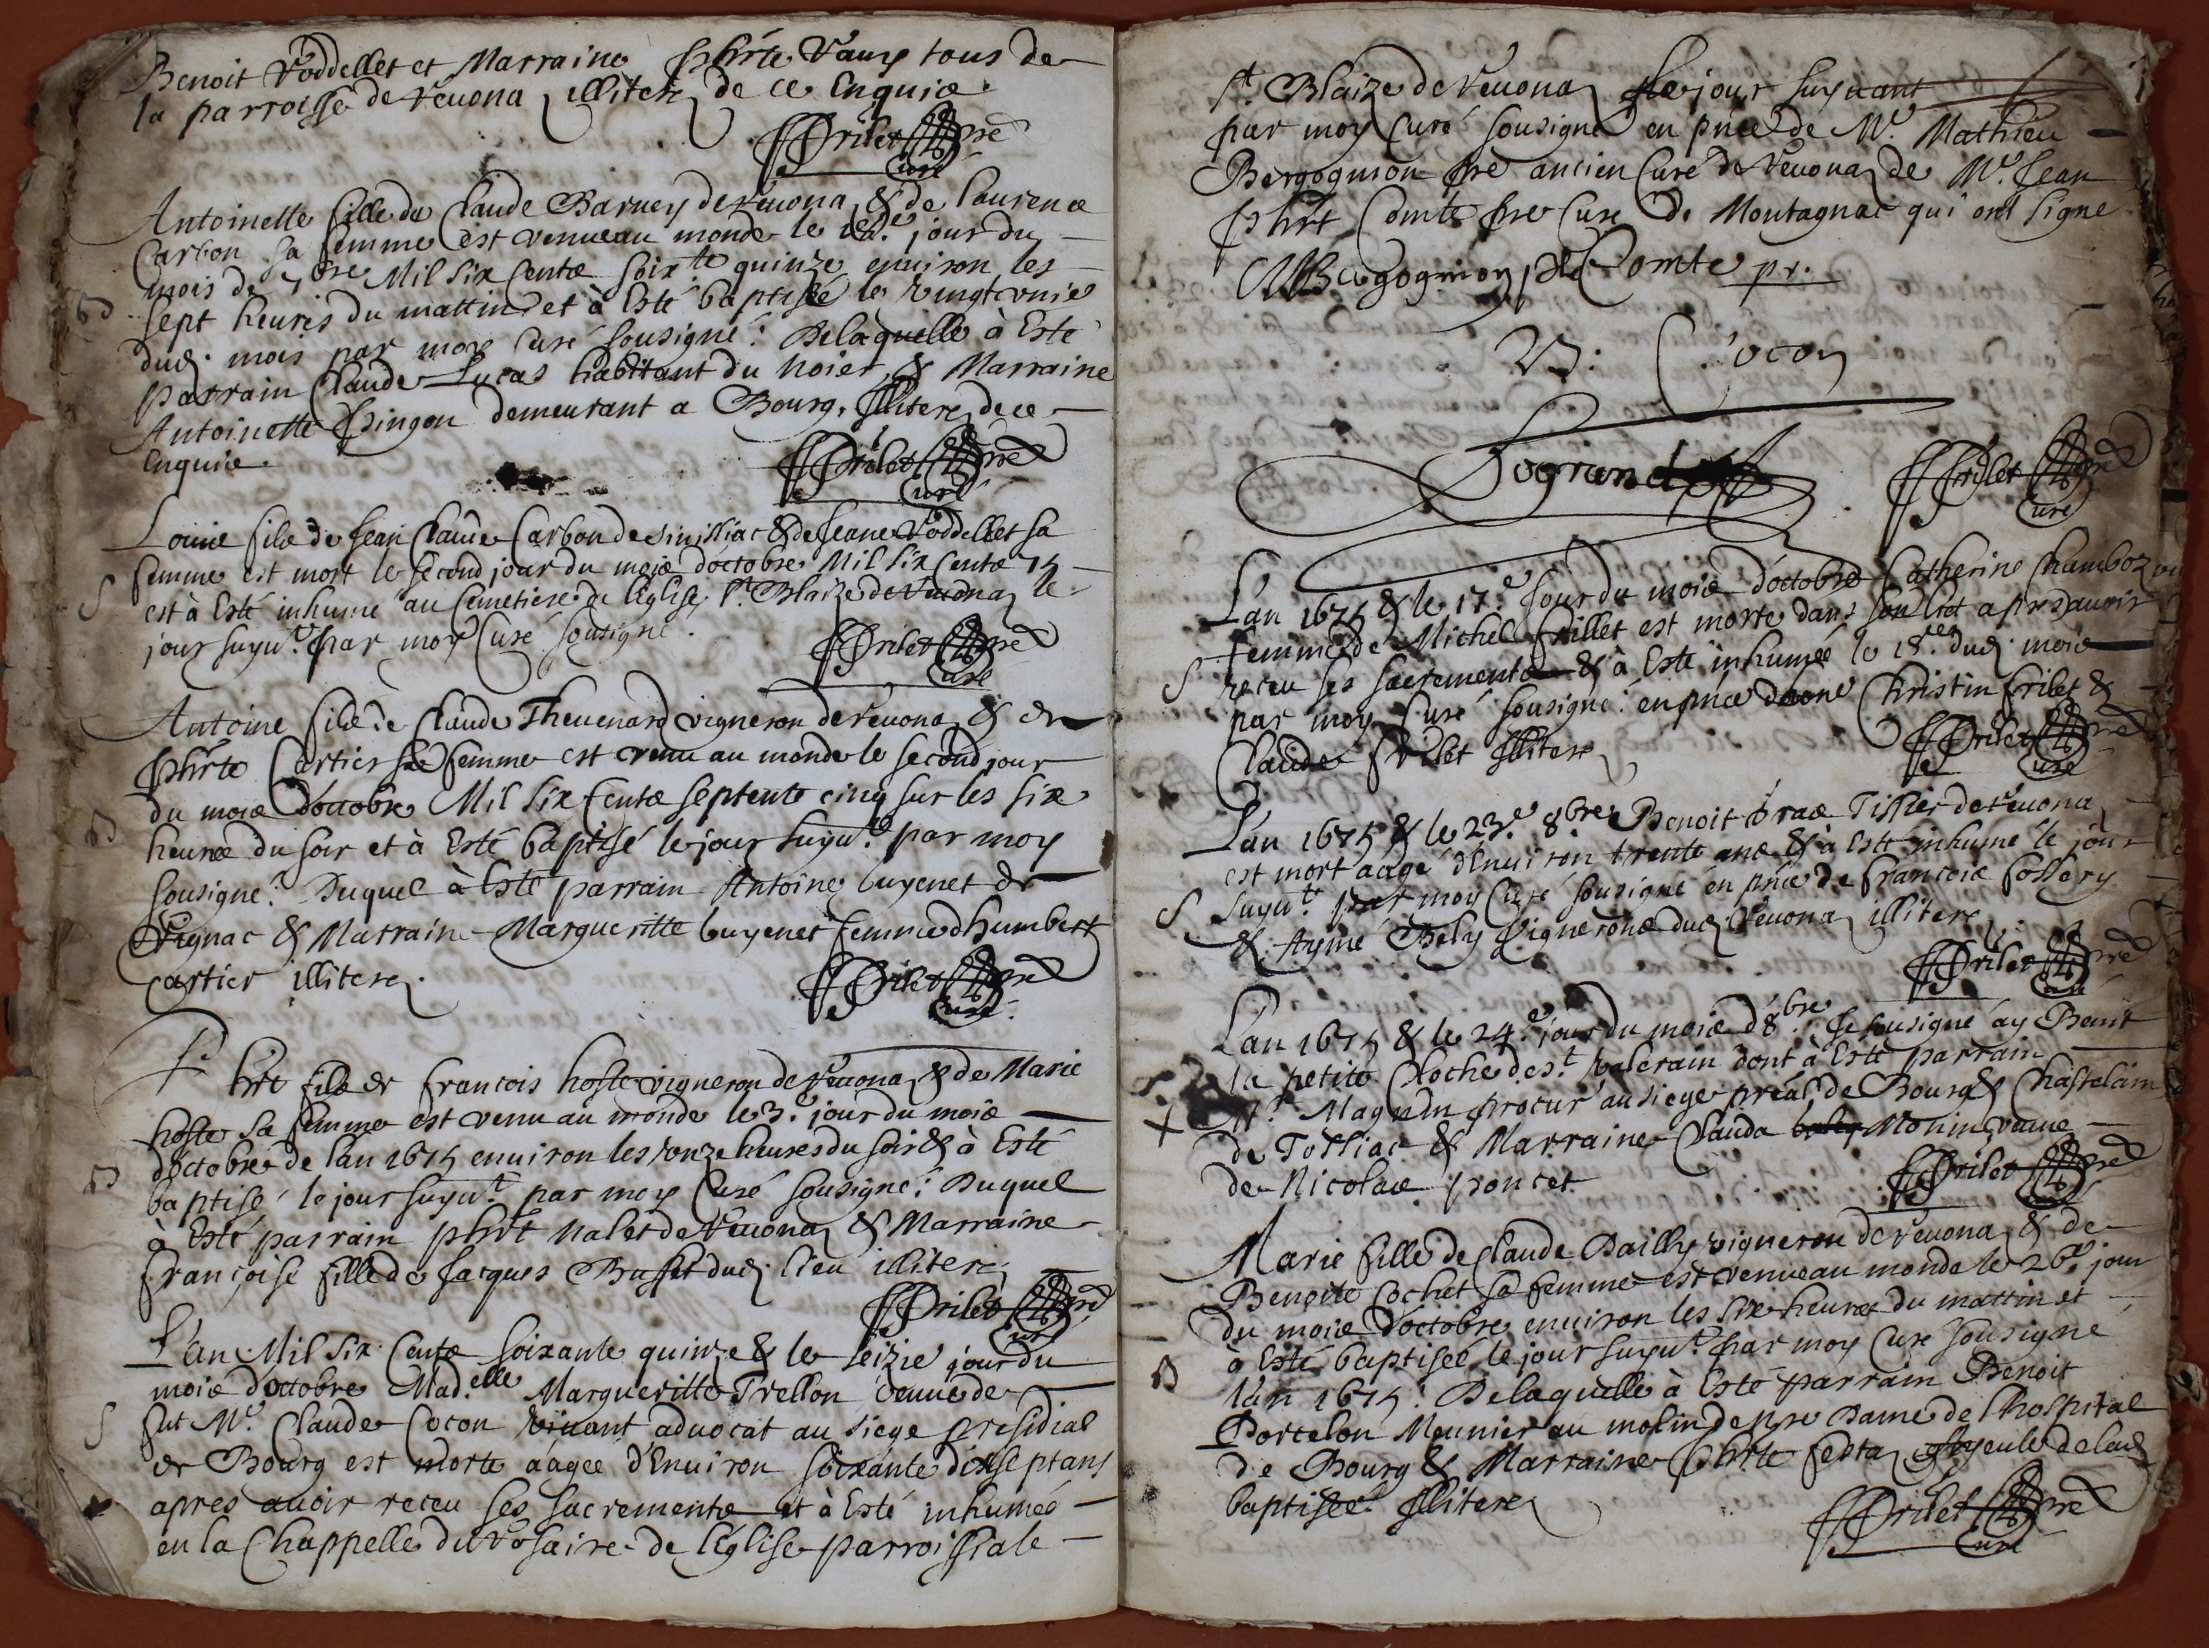 Benoit Voddellet et Marraine phrte Vauy tous de
la parroisse de reuona illiterez de ce Enquie.
ffrilet pre
Curé
Antoinette fille de Claude Barney de reuona & de laurence
Carbon sa femme est venue au monde le jour du
mois de 7bre Mil six Cents soixte quinze enuiron les
B
sept heures du mattin et à Esté baptisée le vingt vnie
dud. mois par moy Curé sousigné: Delaquelle à Esté
parrain Claude Lucas habittant du noier & Marraine
Antoinette Pingon demeurant a Bourg, Illiterez de ce
Enquie.
ffrilet pre
Curé
Louis fils de Jean Claude Carbon de & de Jeane Voddellet sa
S
femme est mort le second jour du mois d'octobre Mil six Cents 75
est à Esté inhumé au Cemetiere de l'Eglise St. Blaize de reuona le
jour suyut. par moy Curé sousigné.
ffrilet pre
Curé
Antoine fils de Claude Theuenard vigneron de reuona & de
phrte Cartier sa femme est venu au monde le second jour
du mois d'octobre Mil six Cents septente cinq sur les six
B
heures du soir et à Esté baptisé le jour suyut. par moy
sousigné. Duquel à Esté parrain Antoine buyenet de
& Marraine Margueritte buyenet femme d'humbert
cartier illiterez.
ffrilet pre
Curé
Phrt fils de francois hoste vigneron de reuona & de Marie
hoste sa femme est venu au monde le 3e. jour du mois
d'octobre de l'an 1675 enuiron les onze heures du soir & à Esté
B
baptisé le jour suyut. par moy Curé sousigné: Duquel
à Esté parrain phrt nalet de reuona & Marraine
françoise fille de Jacques Buffet dud. lieu illiterez
ffrilet pre
Curé
L'an Mil six Cents soixante quinze & le seizie jour du
mois d'octobre Madelle Margueritte Trellon veuue de
S
fut Mr. Claude Cocon viuant aduocat au siege presidial
de Bourg est morte aagée d'Enuiron soixante dix sept ans
apres auoir receu ses sacrements et à Esté inhumée
en la Chappelle du rosaire de l'Eglise parroissiale
St. Blaize de reuona le jour suyuant
par moy Curé sousigné en pnce de Mr. Mathieu
Bergognion pre ancien Curé de reuona de Mr. Jean
phrt Comte pre Curé de Montagnac qui ont signé
MBergognion Comte pr.
B: Cocon
ffrilet pre
Curé
L'an 1675 & le 17e. Jour du mois d'octobre Catherine Chamboz
femme de Michel frillet est morte dans son lict apres auoir
S
receu ses sacrements & à Esté inhumée le 18. dud. mois
par moy Curé sousigné: en pnce de Christin frilet &
Claude frilet Illiterez
ffrilet pre
Curé
L'an 1675 & le 23e. 8bre Benoit Tissier de reuona
est mort aagé d'Enuiron trente ans & à Esté inhumé le jour
S
suyut. par moy Curé sousigné en pnce de francois
& Aymé Bely Vignerons dud. reuona illiterez
ffrilet pre
Curé
L'an 1675 & le 24e. jour du mois d'8bre. Je sousigné ay Benit
la petite Cloche de St. valerain dont à Esté parrain
+
Mr. Magnin procur' au siege préal de Bourg & Chastelain
de Tossiac & Marraine Clauda Monin veuue
de Nicolas poncet.
ffrilet pre
Curé
Marie fille de Claude Bailly vigneron de reuona & de
Benoite Cochet sa femme est venue au monde le 26e. jour
du mois d'octobre enuiron les six heures du mattin et
à Esté baptiseé le jour suyut. par moy Curé sousigné
B
l'an 1675. Delaquelle à Esté parrain Benoit
Portelon Meunier au molin de nre Dame de l'hospital
de Bourg & Marraine phrte ayeule de lad.
baptisée. Illiterez
ffrilet pre
Curé